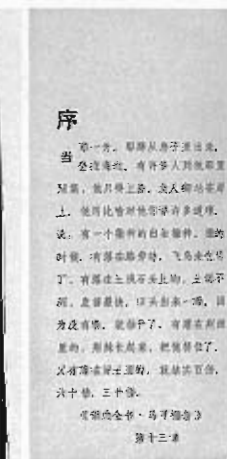 序
当那一天，耶稣从房子里出来，
坐在海边。有许多人到他那里
聚集，他只得上船，
上。他用比喻对他们讲许多道理，
说：有一个撒种的出去撒种。撒的
时候，有落在路旁的，飞鸟来吃尽
了；有落在土浅石头上的，土既不
深，发苗最快，日头出来一晒，因
为没有根，就枯干了；有落在荆棘
里的，荆棘长起来，把它挤住了；
又有落在好土里的，就结实百倍，
六十倍，三十倍。
《新约全书·马可福音》
第十三章